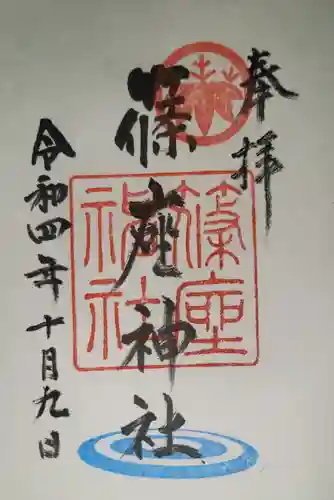 奉拝
篠座神社
篠座神社
令和四年十月九日